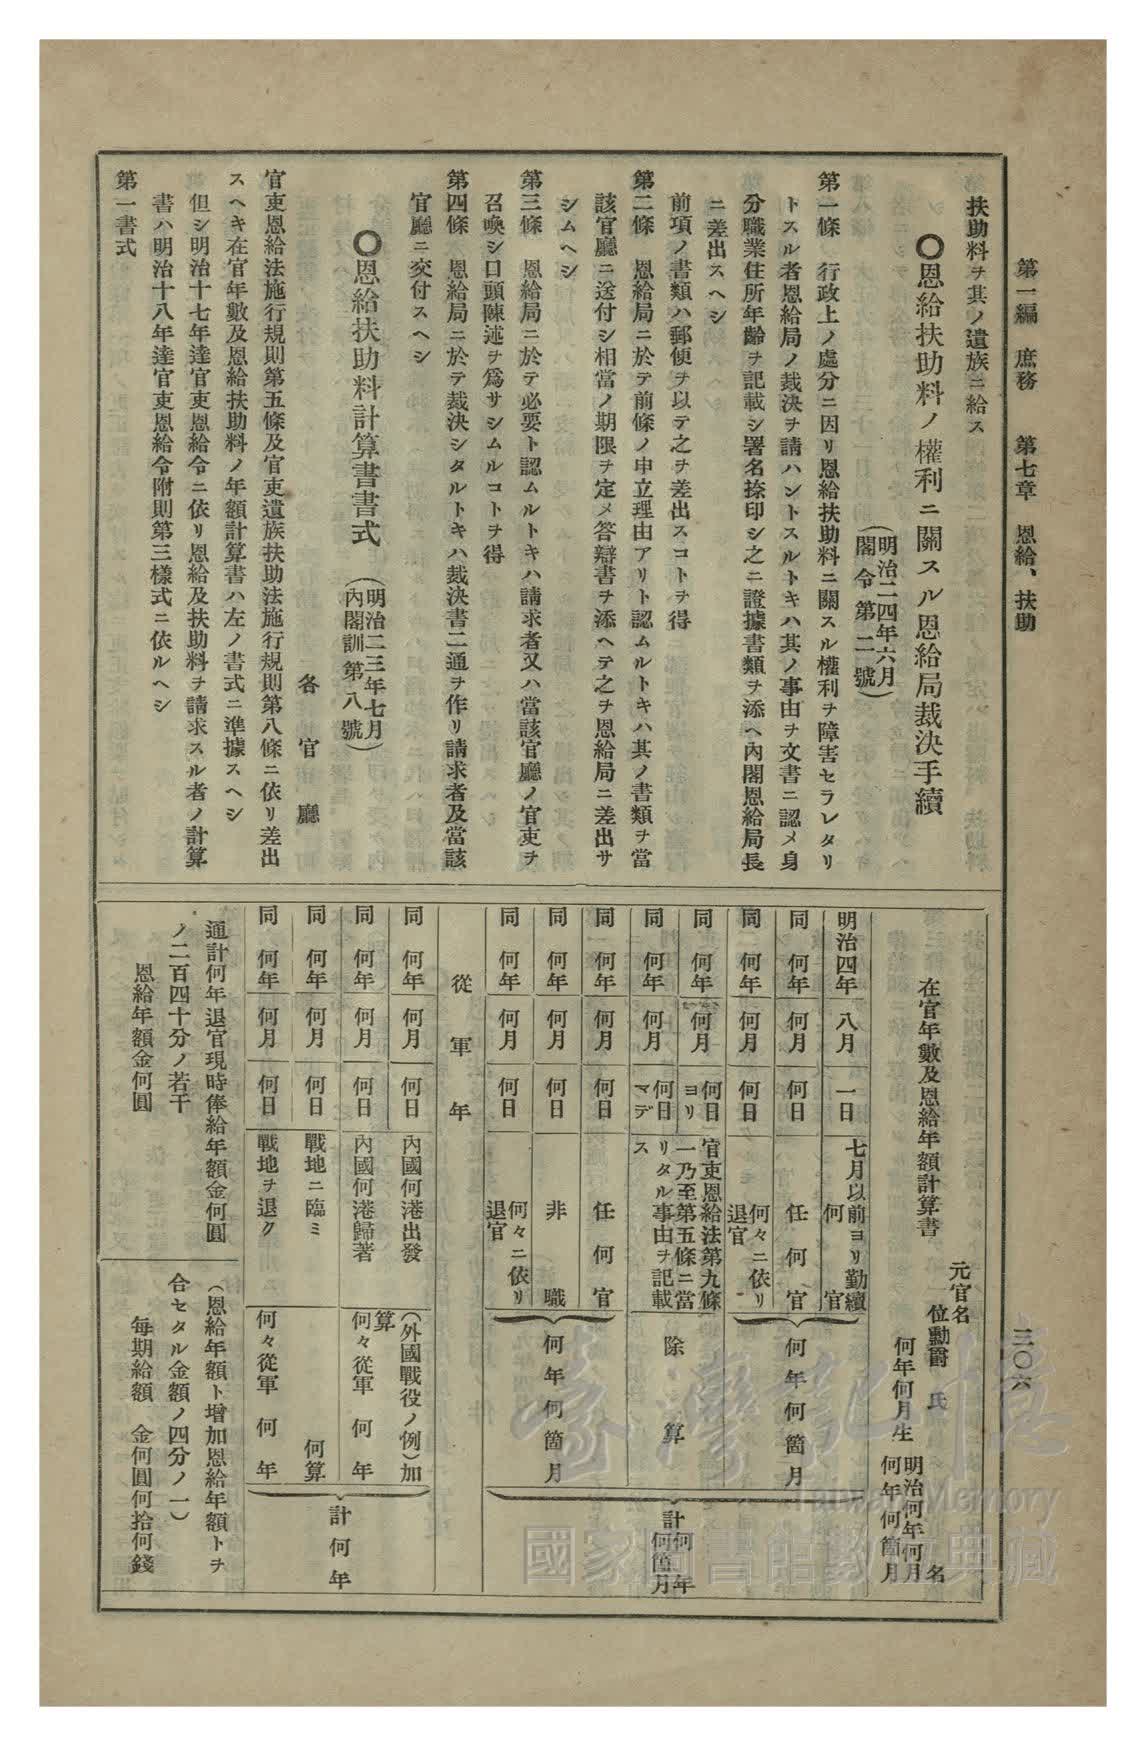 第一編　庶務　　第七章　恩給、扶助
三〇六
扶助料ヲ其ノ遺族ニ給ス
〇恩給扶助料ノ權利ニ關スル恩給局裁決手續
（明治二四年六月
閣令第二號）
第一條　行政上ノ處分ニ因リ恩給扶助料ニ關スル權利ヲ障害セラレタリ
トスル者恩給局ノ裁決ヲ請ハントスルトキハ其ノ事由ヲ文書ニ認メ身
分職業住所年齡ヲ記載シ署名捺印シ之ニ證據書類ヲ添ヘ內閣恩給局長
ニ差出スヘシ
前項ノ書類ハ郵便ヲ以テ之ヲ差出スコトヲ得
第二條　恩給局ニ於テ前條ノ申立理由アリト認ムルトキハ其ノ書類ヲ當
該官廳ニ送付シ相當ノ期限ヲ定メ答辯書ヲ添ヘテ之ヲ恩給局ニ差出サ
シムヘシ
第三條　恩給局ニ於テ必要ト認ムルトキハ請求者又ハ當該官廳ノ官吏ヲ
召喚シ口頭陳述ヲ爲サシムルコトヲ得
第四條　恩給局ニ於テ裁決シタルトキハ裁決書二通ヲ作リ請求者及當該
官廳ニ交付スヘシ
〇恩給扶助料計算書書式
（明治二三年七月
內閣訓第八號）
各官廳
官吏恩給法施行規則第五條及官吏遺族扶助法施行規則第八條ニ依リ差出
スヘキ在官年數及恩給扶助料ノ年額計算書ハ左ノ書式ニ準據スヘシ
但シ明治十七年達官吏恩給令ニ依リ恩給及扶助料ヲ請求スル者ノ計算
書ハ明治十八年達官吏恩給令附則第三樣式ニ依ルヘシ
第一書式
元官名
位勳爵　氏　名
在官年數及恩給年額計算書
何年何月生
明治何年何月
何年何箇月
明治四年　八月　一日　七月以前ヨリ勤續　何官
同　何年　何月　何日　任何官　何年何箇月
同　何年　何月　何日　何々ニ依リ退官
同　何年　何月　何日ヨリ　官吏恩給法第九條
一乃至第五條ニ當
同　何年　何月　何日マデ　リタル事由ヲ記載
ス　除算
同　何年　何月　何日　任何官
同　何年　何月　何日　非職　何年何箇月
同　何年　何月　何日　何々ニ依リ退官
計何年何箇月
從軍年
同　何年　何月　何日　內國何港出發　（外國戰役ノ例）加算
同　何年　何月　何日　內國何港歸著　何々從軍　何年
同　何年　何月　何日　戰地ニ臨ミ　何算
同　何年　何月　何日　戰地ヲ退ク　何々從軍　何年
計何年
通計何年退官現時俸給年額金何圓
ノ二百四十分ノ若干
恩給年額金何圓
（恩給年額ト增加恩給年額トヲ
合セタル金額ノ四分ノ一）
每期給額　金何圓何拾何錢
臺灣記憶
Taiwan Memory
國家圖書館數位典藏